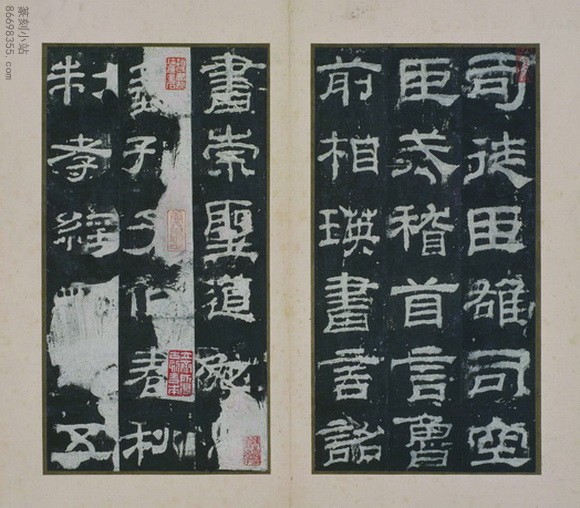 司徒臣雄司空
臣戒稽首言魯
前相瑛書言詔
書崇聖道勉
孔子作春秋
制孝經五
篆刻小站
86698355.com